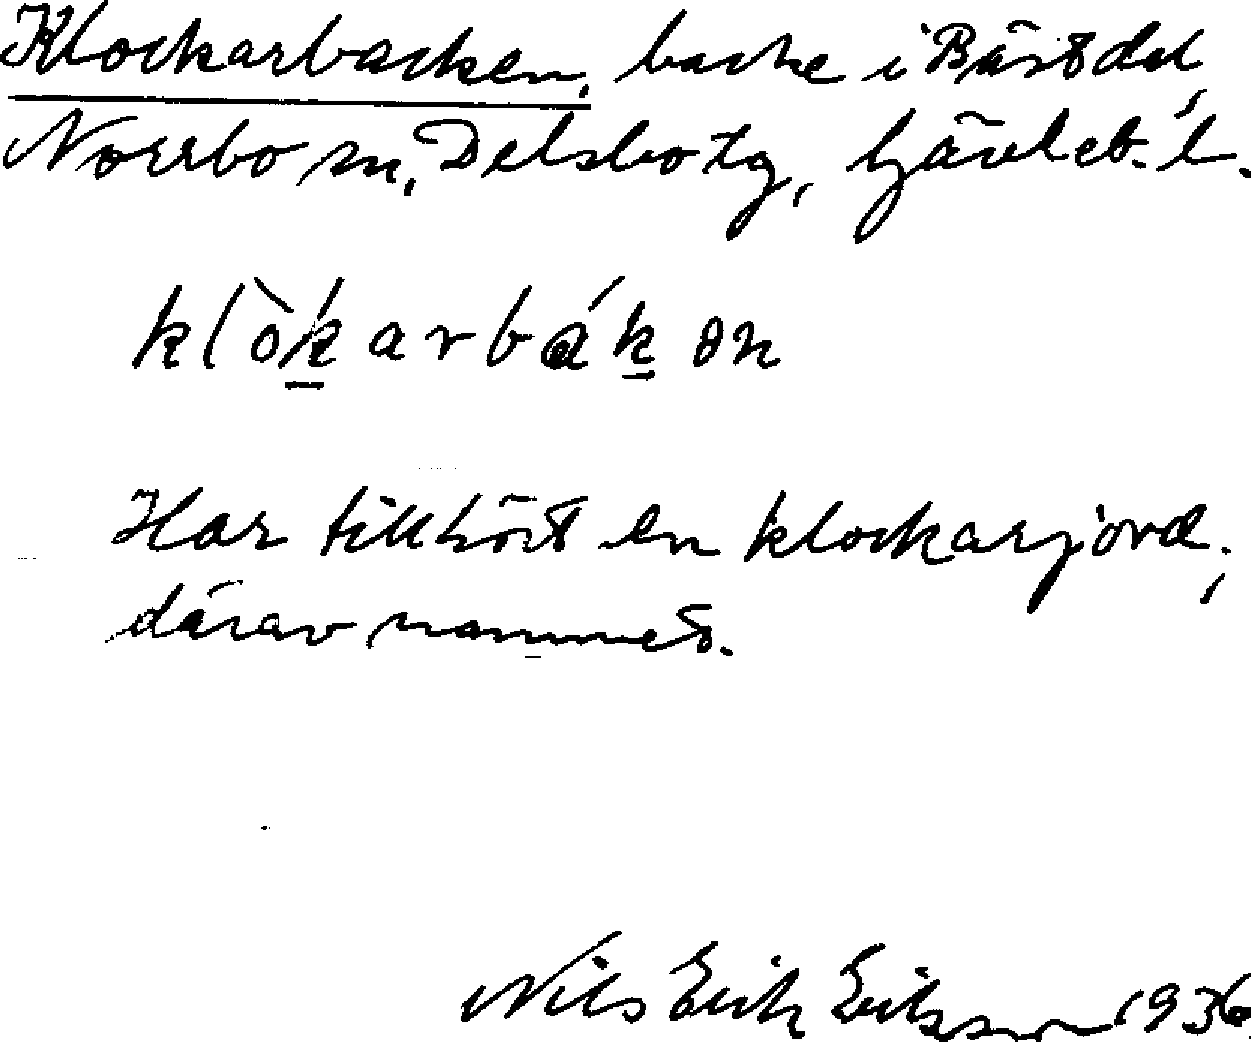 Klockarbacken, backe i Bästdal,
Norrbo sn, Delsbo tg, Gävleb. l.
klòkarbákən
Har tillhört en klockarjord;
därav namnet.
Nils Erik Eriksson 1936